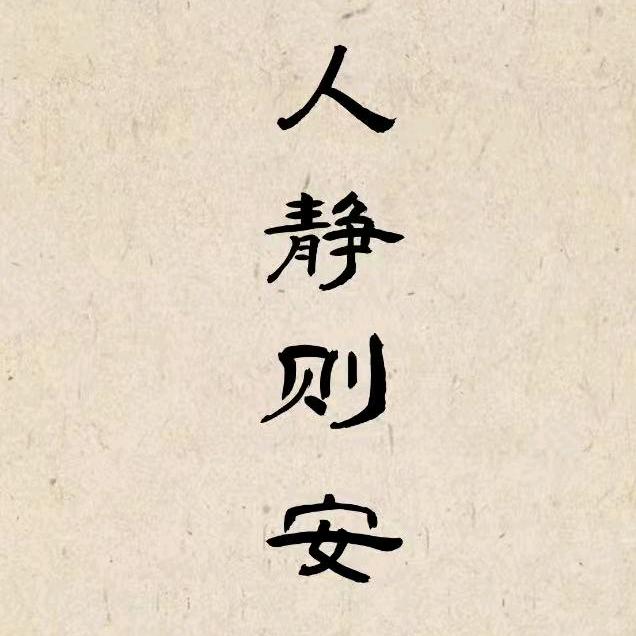 人静则安